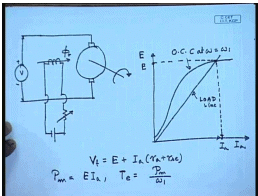 V
E
E
O.C.C at ω = ω₁
LOAD
LINE
Iₐ Iₐ
Vₜ = E + Iₐ (rₐ + rₐₑ)
Pₘ = E Iₐ, Tₑ = Pₘ / ω₁